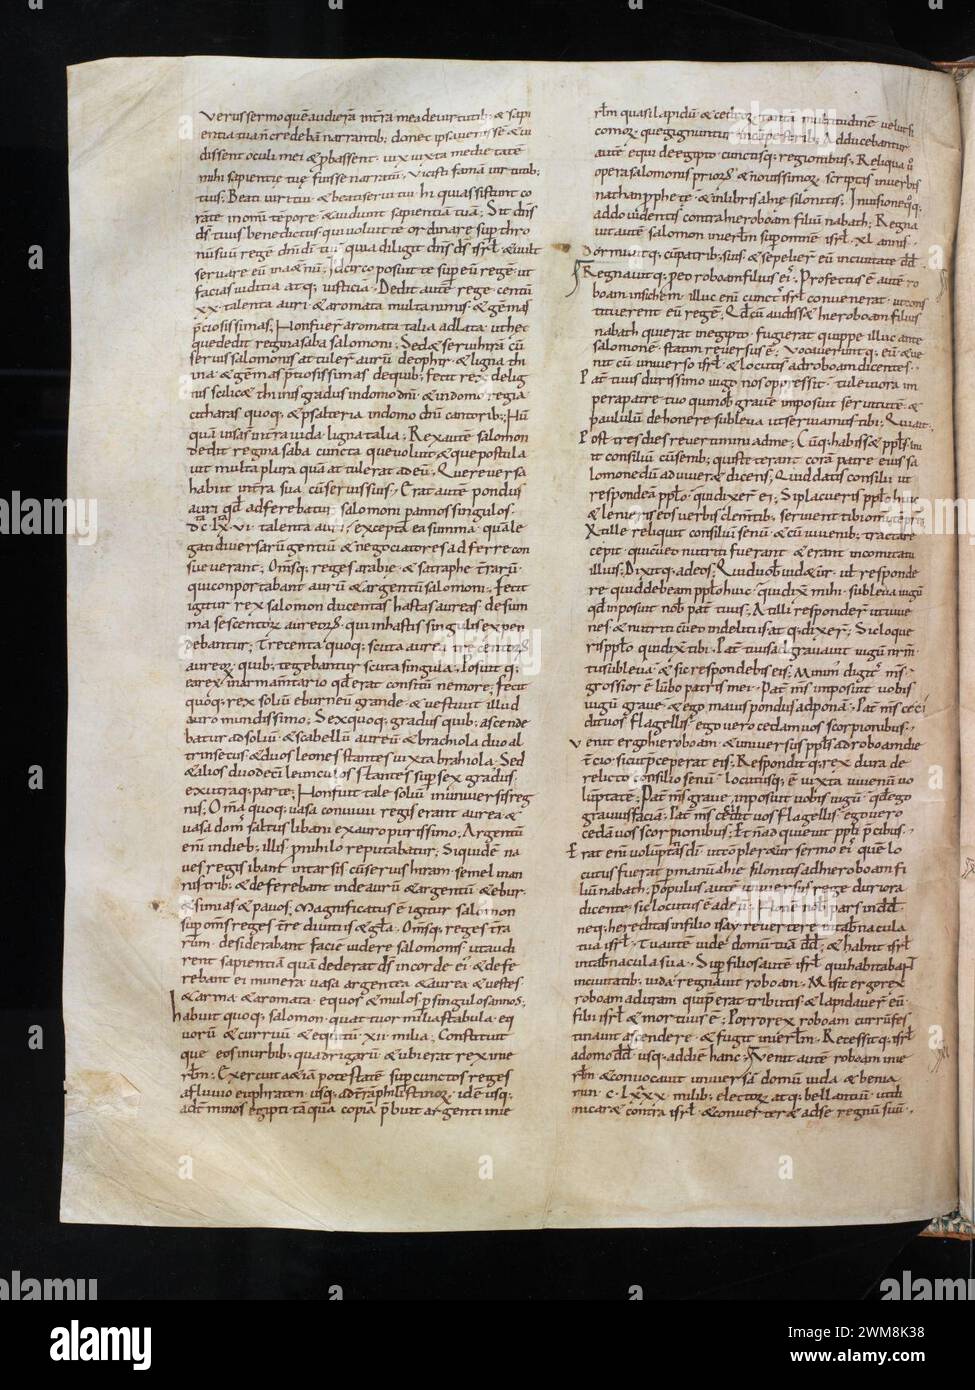 verus sermo quē audierā in tr̄a mea de uirtutib; & sapi
entia tua n̄ credebā narrantib; donec ipsa uenissē & ui
dissent oculi mei & p̱bassent uix uixta medietatē
mihi sapientię tuę fuisse narratā; Vicisti famā uirtutib;
tuis; Beati uiri tui & beati serui tui hi qui assistunt co
rā te in om̄i tēpore & audiunt sapientiā tuā; Sit dn̄s
d̄s tuus benedictus qui uoluit te ordinare sup̱ thro
nū suū regē dn̄i dī tui; quia diligit dn̄s d̄s isrl̄ & uult
seruare eū in &̨nū; Idcirco posuit te sup̱ eū regē ut
facias iuditia atq; iusticiā; Dedit autē regi centū
xx talenta auri & aromata multa nimis & gēmas
p̄ciosissimas; Non fuer̄ aromata talia ad lata ut hec
que dedit regina saba salomoni; Sed & serui hirā cū
seruis salomonis at tuler̄ aurū de ophir & ligna thi
ina & gēmas p̄tiosissimas de quib; fecit rex de lig
nis scilic& thinis gradus in domo dn̄i & in domo regia
citharas quoq; & psalteria in domo dn̄i cantorib;; Nū
quā uisa sn̄t in tr̄a iuda ligna talia; Rex autē salomon
dedit regina saba cuncta que uoluit & que postula
uit multa plura quā at tulerat ad eū; Que reuersa
habiit in tr̄a sua cū seruis suis; Erat autē pondus
auri qd̄ adferebatur salomoni p̱ annos singulos
dc lx vi talenta auri excepta ea summa quā le
gati diuersarū gentiū & negociatores adferre con
sueuerant; Om̄sq; reges arabię & satraphe tr̄arū
qui conportabant aurū & argentū salomoni; Fecit
igitur rex salomon ducentas hastas aureas de sum
ma sescentor̄ aureor̄ qui in hastis singulis expen
debantur; Trecenta quoq; scuta aurea trecentor̄
aureor̄ quib; tegebantur scuta singula; Posuit q;
ea rex in armamtario qd̄ erat consitū nemore; Fecit
quoq; rex soliū eburneū grande & uestiuit illud
auro mundissimo; Sex quoq; gradus quib; ascende
batur ad soliū & scabellū aureū & brachiola duo al
trinsecus & duos leones stantes iuxta brahiola; Sed
& alios duodecī leunculos stantes sup̱ sex gradus
ex utraq; parte; Non fuit tale soliū in uniuersis reg
nis; Om̄a quoq; uasa conuiuii regis erant aurea &
uasa dom; saltus libani ex auro purissimo; Argentū
eni in dieb; illis p̱ nihilo reputabatur; Siquidē na
ues regis ibant in tarsis cū seruis hiram semel in an
nis trib; & deferebant inde aurū & argentū & ebur
& simias & pauos; Magnificatus ē igitur salomon
sup̱ om̄s reges tr̄e diuitiis & gl̄a; Om̄sq; reges tr̄a
rūm desiderabant faciē uidere salomonis ut audi
rent sapientiā quā dederat d̄s in corde ei; & defe
rebant ei munera uasa argentea & aurea & uestes
& arma & aromata equos & mulos p̱ singulos annos;
habuit quoq; salomon quattuor milia stabula eq
uorū & curruū & equitū xii milia; Constituit
que eos in urbib; quadrigarū & ubi erat rex in ie
rl̄m; Exercuit &iā potestatē sup̱ cunctos reges
a fluuio euphraten usq; ad tr̄ā philistinor̄ idē usq;
ad t̄minos egipti; Tātā qua copiā p̄buit argenti in ie
rl̄m quasi lapidū & cedror̄ tantā multitudinē uelut si
comor̄ que gignuntur in cāpestrib;; Adducebantur
autē equi de egipto cunctisq; regionibus; Reliqua ū
opera salomonis prior̄ & nouissimor̄ scriptis in uerbis
nathan p̱phetę & in libris ahię silonitis; In uisione q;
addo uidentis contra hieroboam filiū nabath; Regna
uit autē salomon in ierl̄m sup̱ omnē isrl̄ xl annis
Dormiuit q; cū patrib; suis & sepelier̄ eū in ciuitate dd̄
Regnauit q; p̱ eo roboam filius ei; Profectus ē autē ro
boam in sichem illuc eni cunct; isrl̄ conuenerat ut cons
tituerent eū regē; Qd̄ cū audiss& hieroboam filius
nabath qui erat in egipto fugierat quippe illuc ante
salomonē statim reuersus ē; Vocauerunt q; eū & ue
nit cū uniuerso isrl̄ & locuti s̄ ad roboam dicentes
Pat̄ tuus durissimo iugo nos oppressit tu leuiora im
pera patre tuo qui nob̄ grauē imposuit seruitutē &
paululū de honere subleua ut seruiamus tibi; Qui ait
Post tres dies reuertimini ad me; Cūq; habiss& pp̄ls ini
it consiliū cū senib; qui steterant corā patre ei; sa
lomone dū aduiuer& dicens; Quid datis consilii ut
respondeā pp̄lo qui dixer̄ ei; Si placueris pp̄lo huic
& lenieris eos uerbis clem̄tib; seruient tibi om̄i tēpr̄e
At ille reliquit consiliū senū & cū iuuenib; tractare
cepit qui cū eo nutriti fuerant & erant in comitatu
illius; Dixit q; ad eos; Quid uob̄ uid&ur ut responde
re quid debeam pp̄lo huic qui dix̄ mihi subleua iugū
qd̄ imposuit nob̄ pat̄ tuus; At illi responder̄ ut iuue
nes & nutriti cū eo in delitiis at q; dixer̄; Sic loque
ris pp̄lo qui dix̄ tibi Pat̄ tuus adgrauauit iugū nr̄m
tu subleua & sic respondebis eis; Minim; digit; m̄s
grossior ē lūbo patris mei; Pat̄ m̄s imposuit uobis
iugū graue & ego maius pondus adponā; Pat̄ m̄s ceci
dit uos flagellis; ego uero cedam uos scorpionibus;
Venit ergo hieroboam & uniuersus pp̄ls ad roboam die
t̄cio sicut p̄ceperat eis; Respondit q; rex dura de
relicto consilio senū locutusq; ē iuxta iuuenū uo
lūptatē; Pat̄ m̄s graue imposuit uobis iugū qd̄ ego
grauius facia; Pat̄ m̄s cecidit uos flagellis ego uero
cedā uos scorpionibus; Et n̄ adquieuit pp̄li p̄cibus
Erat eni uoluptas dī ut cōpler&ur sermo ei; quē lo
cutus fuerat p̱ manū ahię silonitis ad hieroboam fi
liū nabath; p̱pulus autē uniuersus rege duriora
dicente sic locutus ē ad eū; Non ē nob̄ pars in dd̄
neq; hereditas in filio isay reuertere in tab̄nacula
tua isrl̄; Tu autē uide domū tuā dd̄ & habiit isrl̄
in tab̄nacula sua; Sup̱ filios autē isrl̄ qui habitabāt
in ciuitatib; iuda regnauit roboam; Misit q; rex
roboam aduram qui p̄erat tributis & lapidauer̄ eū
filii isrl̄ & mortuus ē; Porro rex roboam currū fes
tinauit ascendere & fugit in ierl̄m; Recessit q; isrl̄
a domo dd̄ usq; ad diē hanc; Venit autē roboam in ie
rl̄m & conuocauit uniuersā domū iuda & benia
min c lxxx milib; elector̄ atq; bellantiū ut di
micar& contra isrl̄ & conuerter& ad se regnū suū